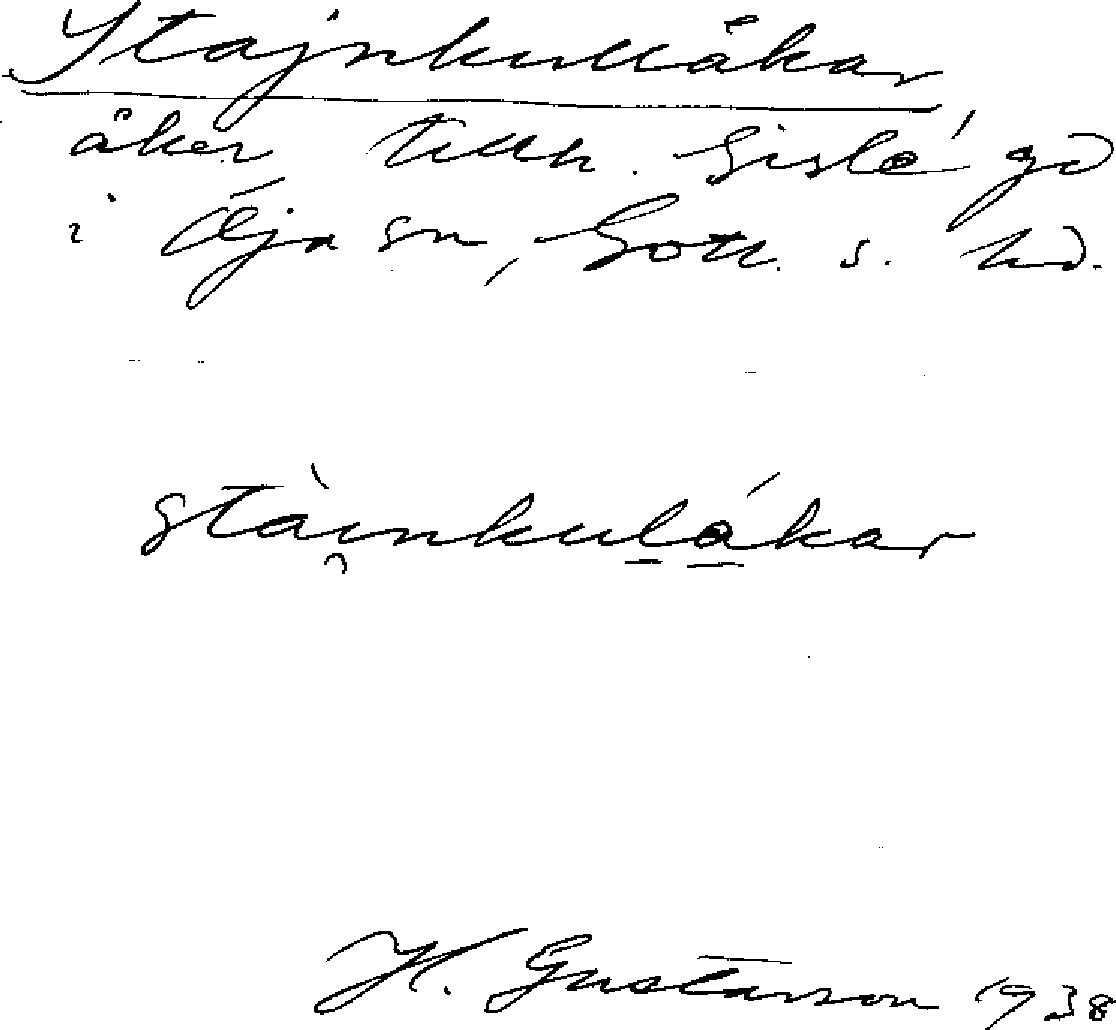 Stajnkullåkar
åker tillh. Gisle gd
i Öja sn, Gotl. s. hd.
stàinkulákar
H. Gustavson 1938